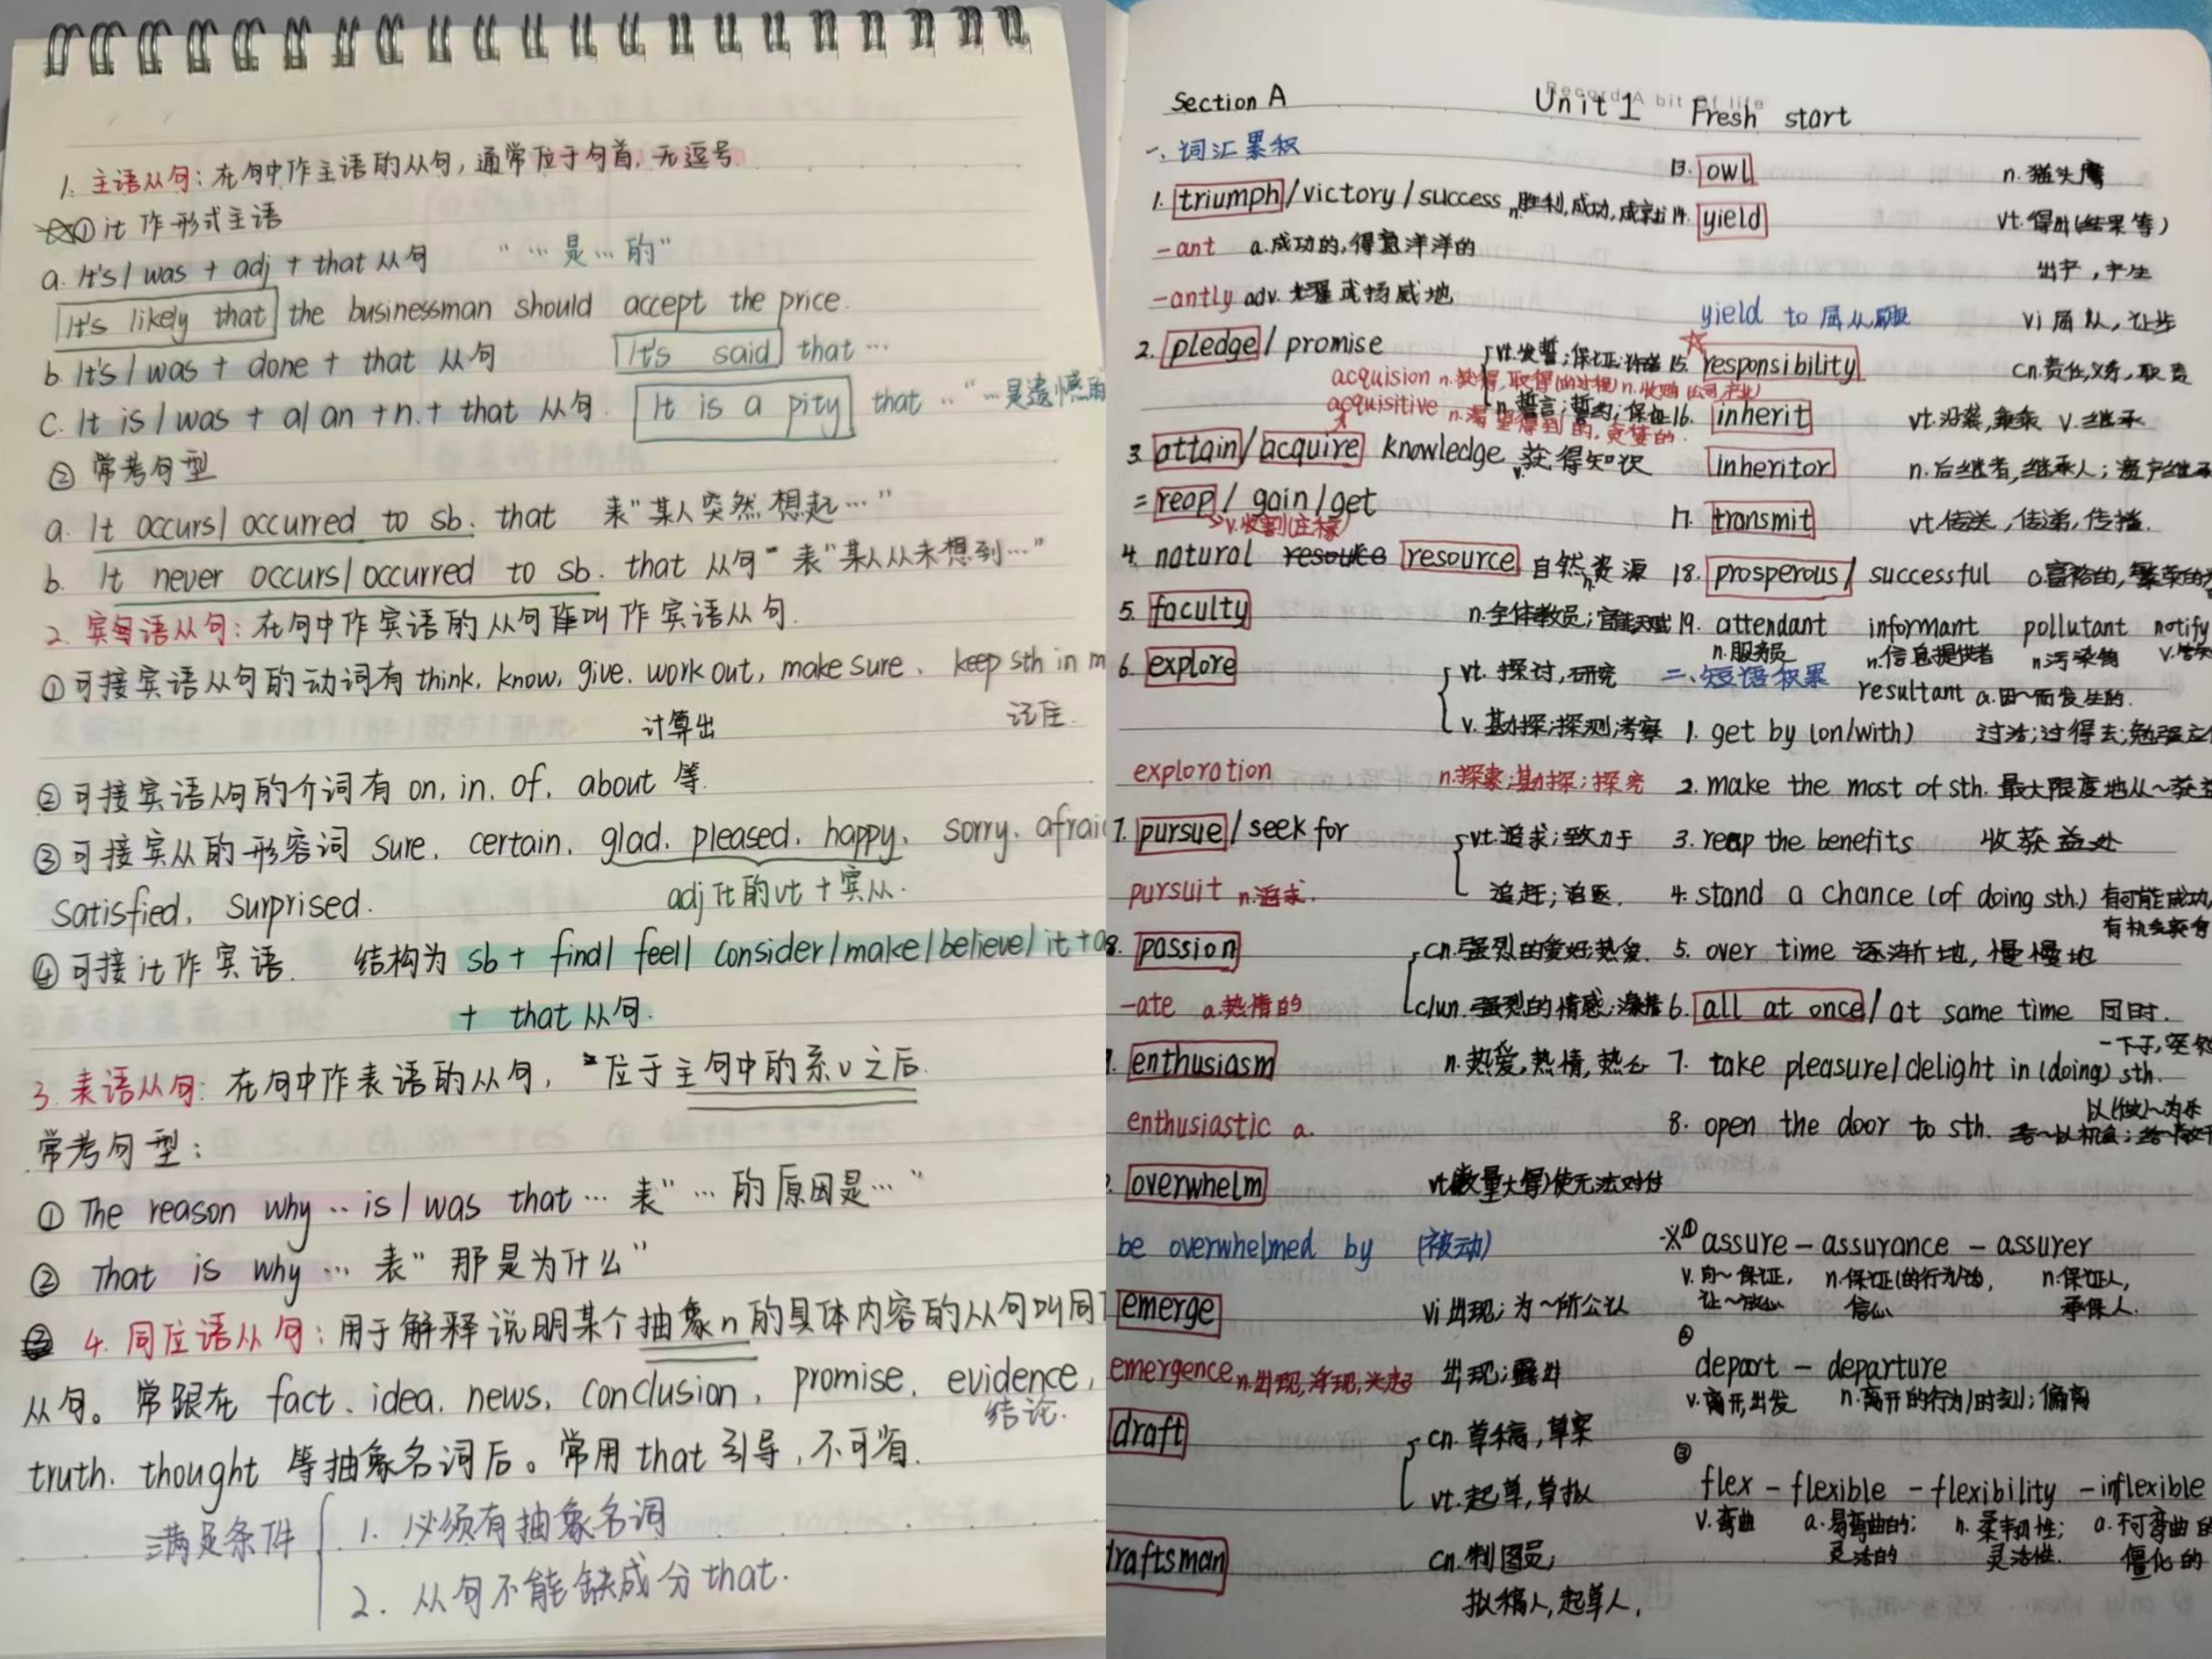 1. 主语从句：在句中作主语的从句，通常位于句首，无逗号
① it 作形式主语
a. It's / was + adj + that 从句 "…是…的"
It's likely that the businessman should accept the price.
b. It's / was + done + that 从句 It's said that …
c. It is / was + a/ an +n. + that 从句. It is a pity that .. "…是遗憾的
② 常考句型
a. It occurs/ occurred to sb. that 表"某人突然想起…"
b. It never occurs/ occurred to sb. that 从句 表"某人从未想到…"
2. 宾语从句：在句中作宾语的从句叫作宾语从句.
①可接宾语从句的动词有 think, know, give, work out, make sure, keep sth in m
计算出 记住.
②可接宾语从句的介词有 on, in, of, about 等.
③可接宾从的形容词 sure, certain, glad, pleased, happy, sorry, afrai
satisfied, surprised. adj 代的vt + 宾从.
④可接it作宾语. 结构为 sb + find/ feel/ consider/make/believe/ it +a
+ that 从句.
3. 表语从句：在句中作表语的从句，位于主句中的系v之后.
常考句型：
① The reason why .. is / was that … 表"…的原因是…"
② That is why … 表"那是为什么"
4. 同位语从句：用于解释说明某个抽象n的具体内容的从句叫同
从句。常跟在 fact, idea, news, conclusion, promise, evidence,
结论.
truth, thought 等抽象名词后。常用 that 引导，不可省.
满足条件 1. 必须有抽象名词
2. 从句不能缺成分that.
Record A bit of life
Section A Unit 1 Fresh start
一、词汇累积
1. triumph / victory / success n.胜利,成功,成就
-ant a.成功的,得意洋洋的
-antly adv. 耀武扬威地
2. pledge / promise vt.发誓;保证;许诺
acquision n.获得,取得(的过程) n.收购(公司,产业)
n.誓言;誓约;保证
acquisitive n.渴望得到的,贪婪的.
3. attain / acquire knowledge v.获得知识
= reap / gain / get
v.收割(庄稼)
4. natural resouce resource 自然n.资源
5. faculty n.全体教员;官能天赋
6. explore vt. 探讨,研究
v. 勘探;探测;考察
exploration n.探索;勘探;探究
7. pursue / seek for vt.追求;致力于
pursuit n.追求. 追赶;追逐.
8. passion cn.强烈的爱好;热爱.
-ate a.热情的 c/un.强烈的情感;激情
enthusiasm n.热爱,热情,热心
enthusiastic a.
overwhelm vt.(数量大得)使无法对付
be overwhelmed by (被动)
emerge vi 出现;为~所公认
emergence n.出现,浮现,兴起 出现;露出
draft cn.草稿,草案
vt.起草,草拟
raftsman cn.制图员;
拟稿人,起草人.
13. owl n.猫头鹰
14. yield vt.得出(结果等)
出产,产生
yield to 屈从,屈服 vi 屈从,让步
15. responsibility cn.责任,义务,职责
16. inherit vt.沿袭,秉承 v.继承
inheritor n.后继者,继承人;遗产继承
17. transmit vt.传送,传递,传播.
18. prosperous / successful a.富裕的,繁荣的
19. attendant informant pollutant notify
n.服务员 n.信息提供者 n.污染物
二、短语积累 resultant a.因~而发生的.
1. get by (on/with) 过活;过得去;勉强
2. make the most of sth. 最大限度地从~获益
3. reap the benefits 收获益处
4. stand a chance (of doing sth.) 有可能成功,
有机会
5. over time 逐渐地,慢慢地
6. all at once / at same time 同时.
一下子,突然
7. take pleasure/delight in (doing) sth.
以(做)~为乐
8. open the door to sth. 给~以机会;
※① assure – assurance – assurer
v. 向~保证, n.保证(的行为), n.保证人,
让~放心 信心 承保人.
② depart – departure
v.离开,出发 n.离开的行为/时刻;偏离
③ flex – flexible – flexibility – inflexible
v.弯曲 a.易弯曲的; n.柔韧性; a.不可弯曲的
灵活的 灵活性. 僵化的